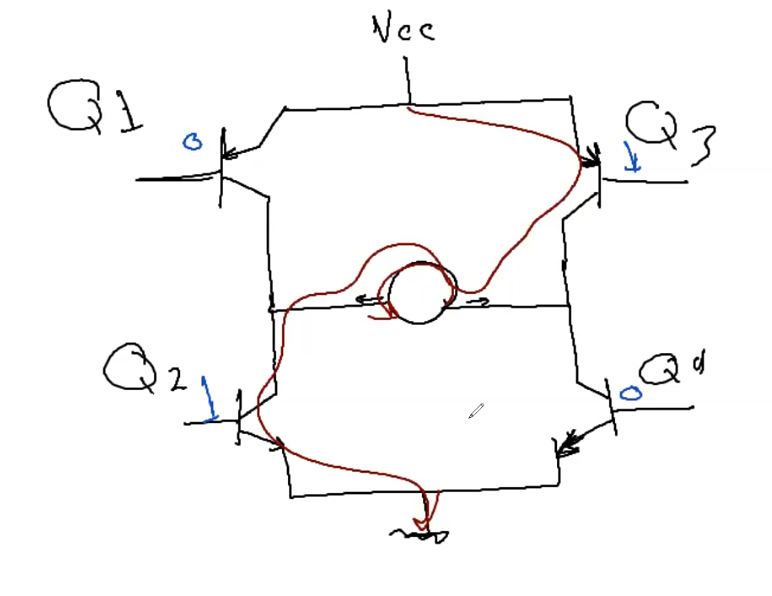 Vcc
Q1
0
Q3
1
Q2
1
Q4
0